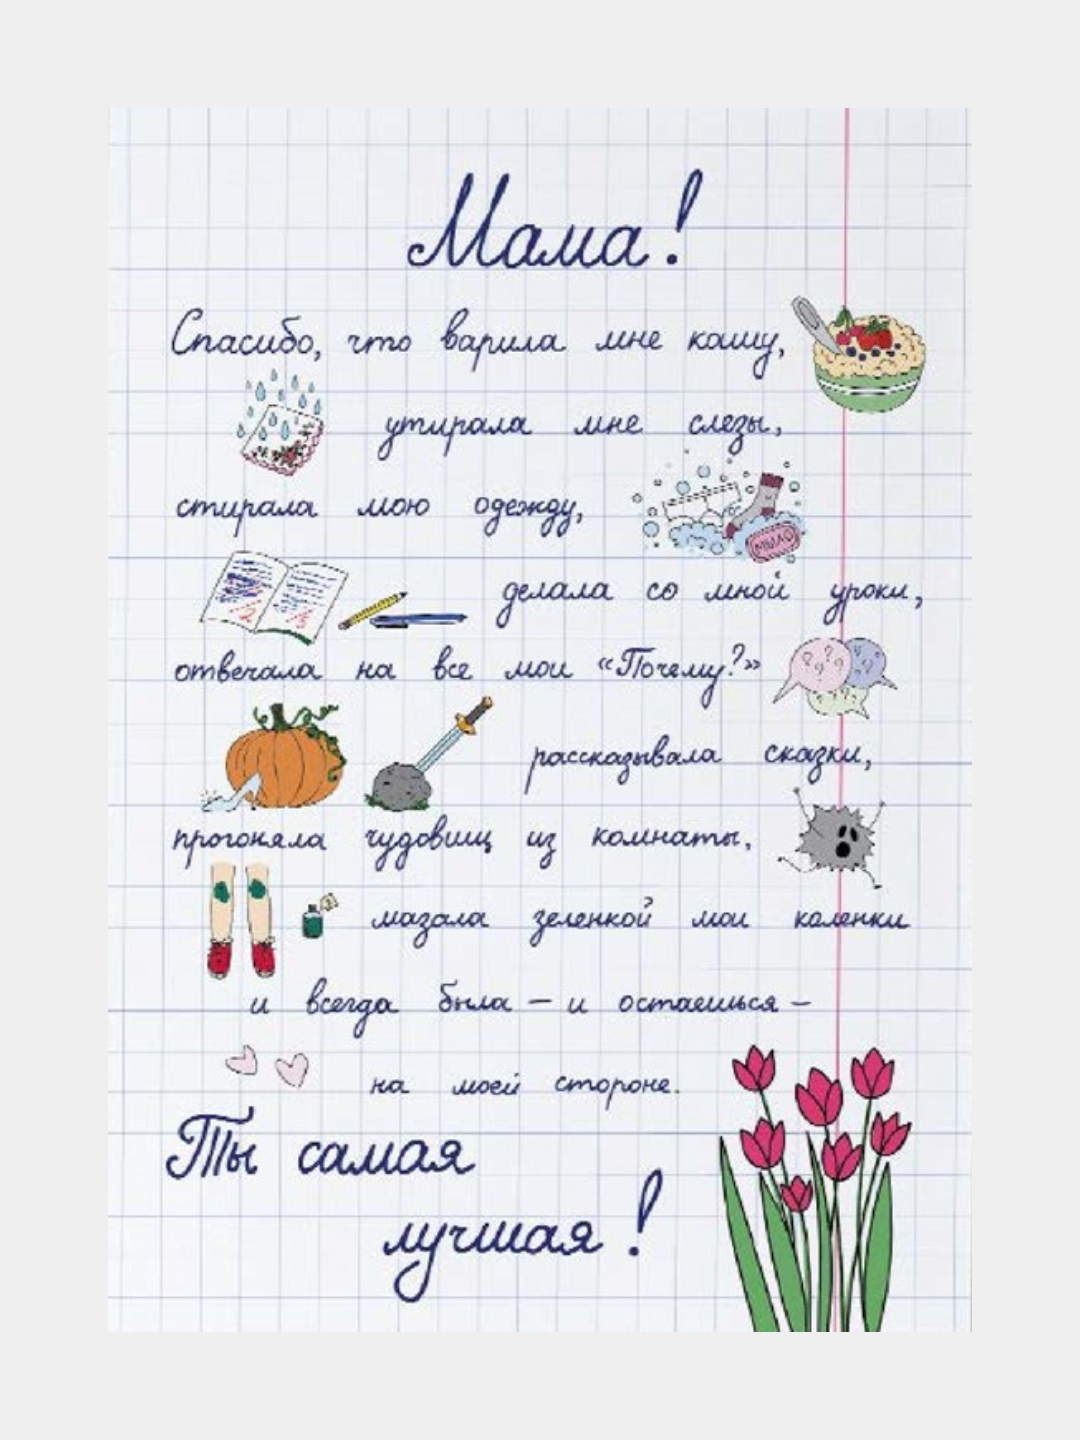 Мама!
Спасибо, что варила мне кашу,
утирала мне слезы,
стирала мою одежду,
МЫЛО
делала со мной уроки,
отвечала на все мои «Почему?»
рассказывала сказки,
прогоняла чудовищ из комнаты,
мазала зеленкой мои коленки
и всегда была – и остаешься –
на моей стороне.
Ты самая
лучшая!